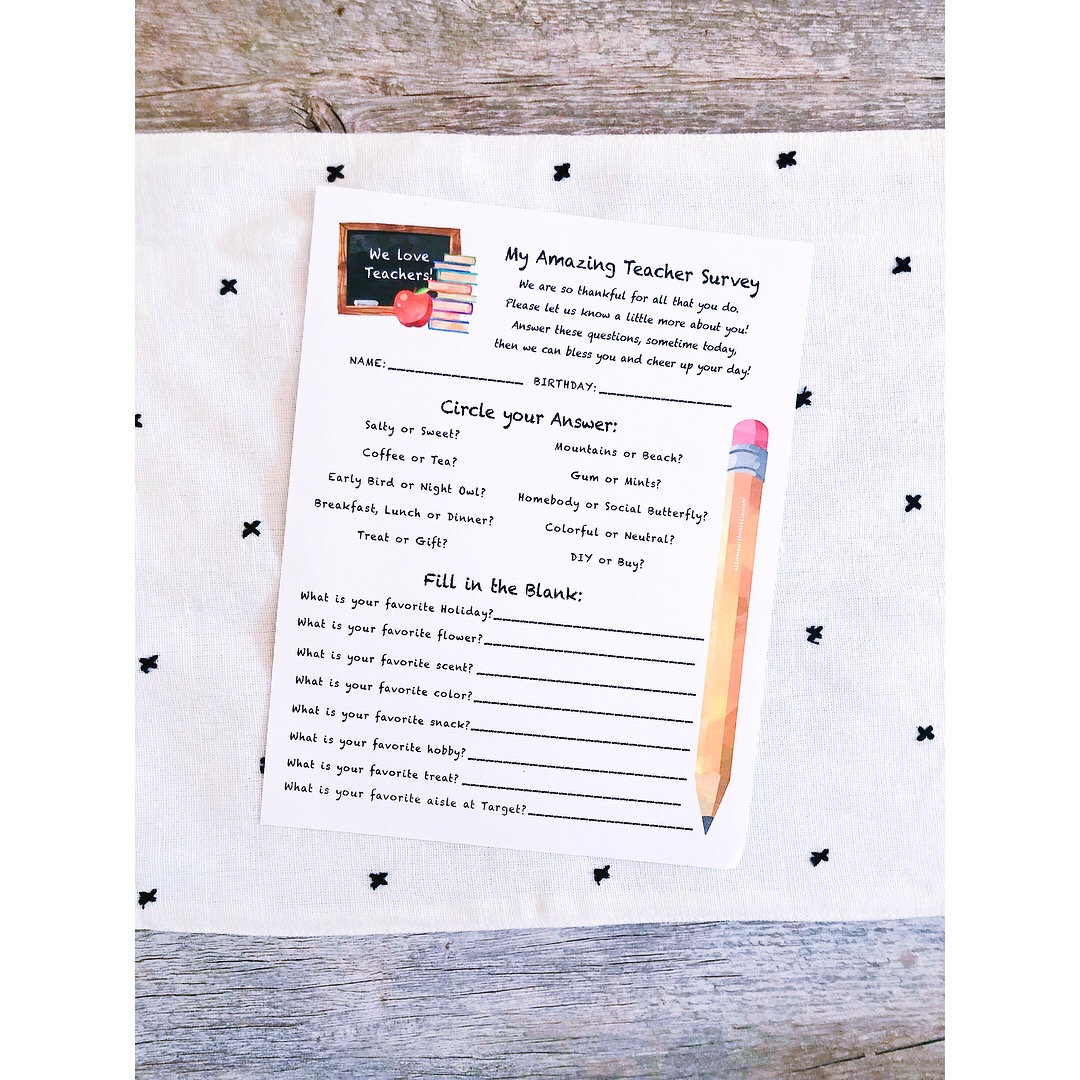 We love
Teachers!
My Amazing Teacher Survey
We are so thankful for all that you do.
Please let us know a little more about you!
Answer these questions, sometime today,
then we can bless you and cheer up your day!
NAME:
BIRTHDAY:
Circle your Answer:
Salty or Sweet?
Mountains or Beach?
Coffee or Tea?
Gum or Mints?
Early Bird or Night Owl?
Homebody or Social Butterfly?
Breakfast, Lunch or Dinner?
Colorful or Neutral?
Treat or Gift?
DIY or Buy?
Fill in the Blank:
What is your favorite Holiday?
What is your favorite flower?
What is your favorite scent?
What is your favorite color?
What is your favorite snack?
What is your favorite hobby?
What is your favorite treat?
What is your favorite aisle at Target?